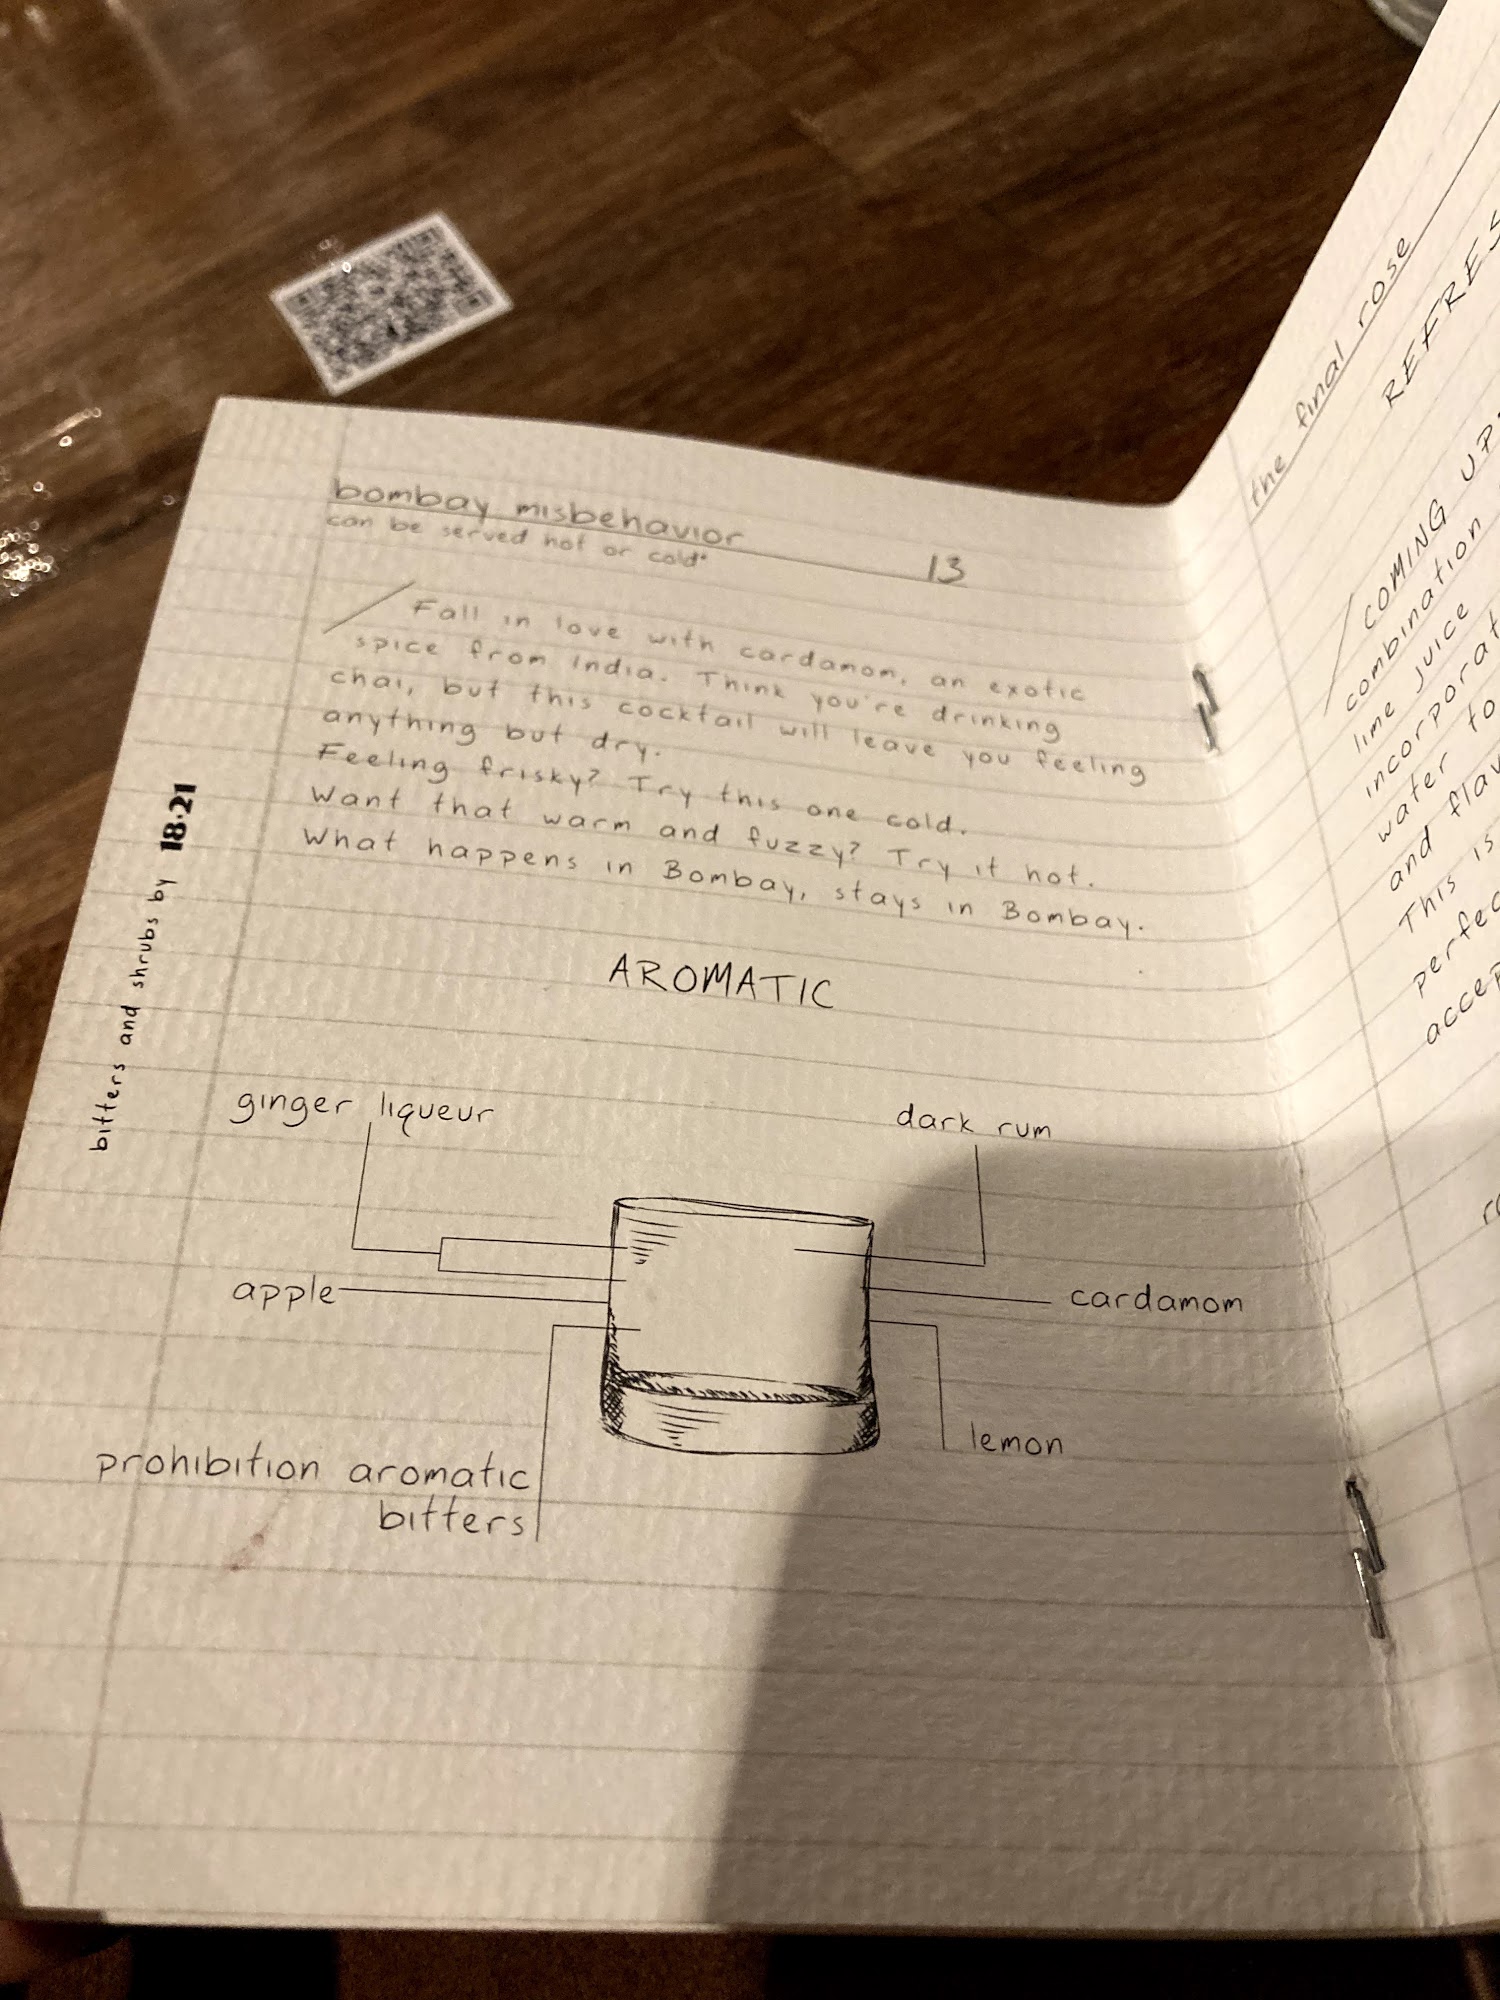 bombay misbehavior
can be served hot or cold*
13
Fall in love with cardamom, an exotic
spice from India. Think you're drinking
chai, but this cocktail will leave you feeling
anything but dry.
Feeling frisky? Try this one cold.
Want that warm and fuzzy? Try it hot.
What happens in Bombay, stays in Bombay.
AROMATIC
ginger liqueur
dark rum
apple
cardamom
lemon
prohibition aromatic
bitters
bitters and shrubs by 18·21
the final rose
COMING
combination
lime juice
water to
This is